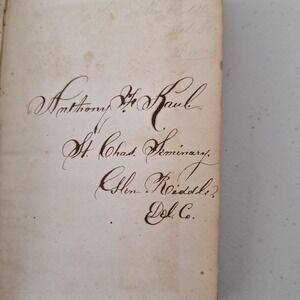 Anthony F. Kaul
St. Chas. Seminary,
Glen Riddle,
Del. Co.